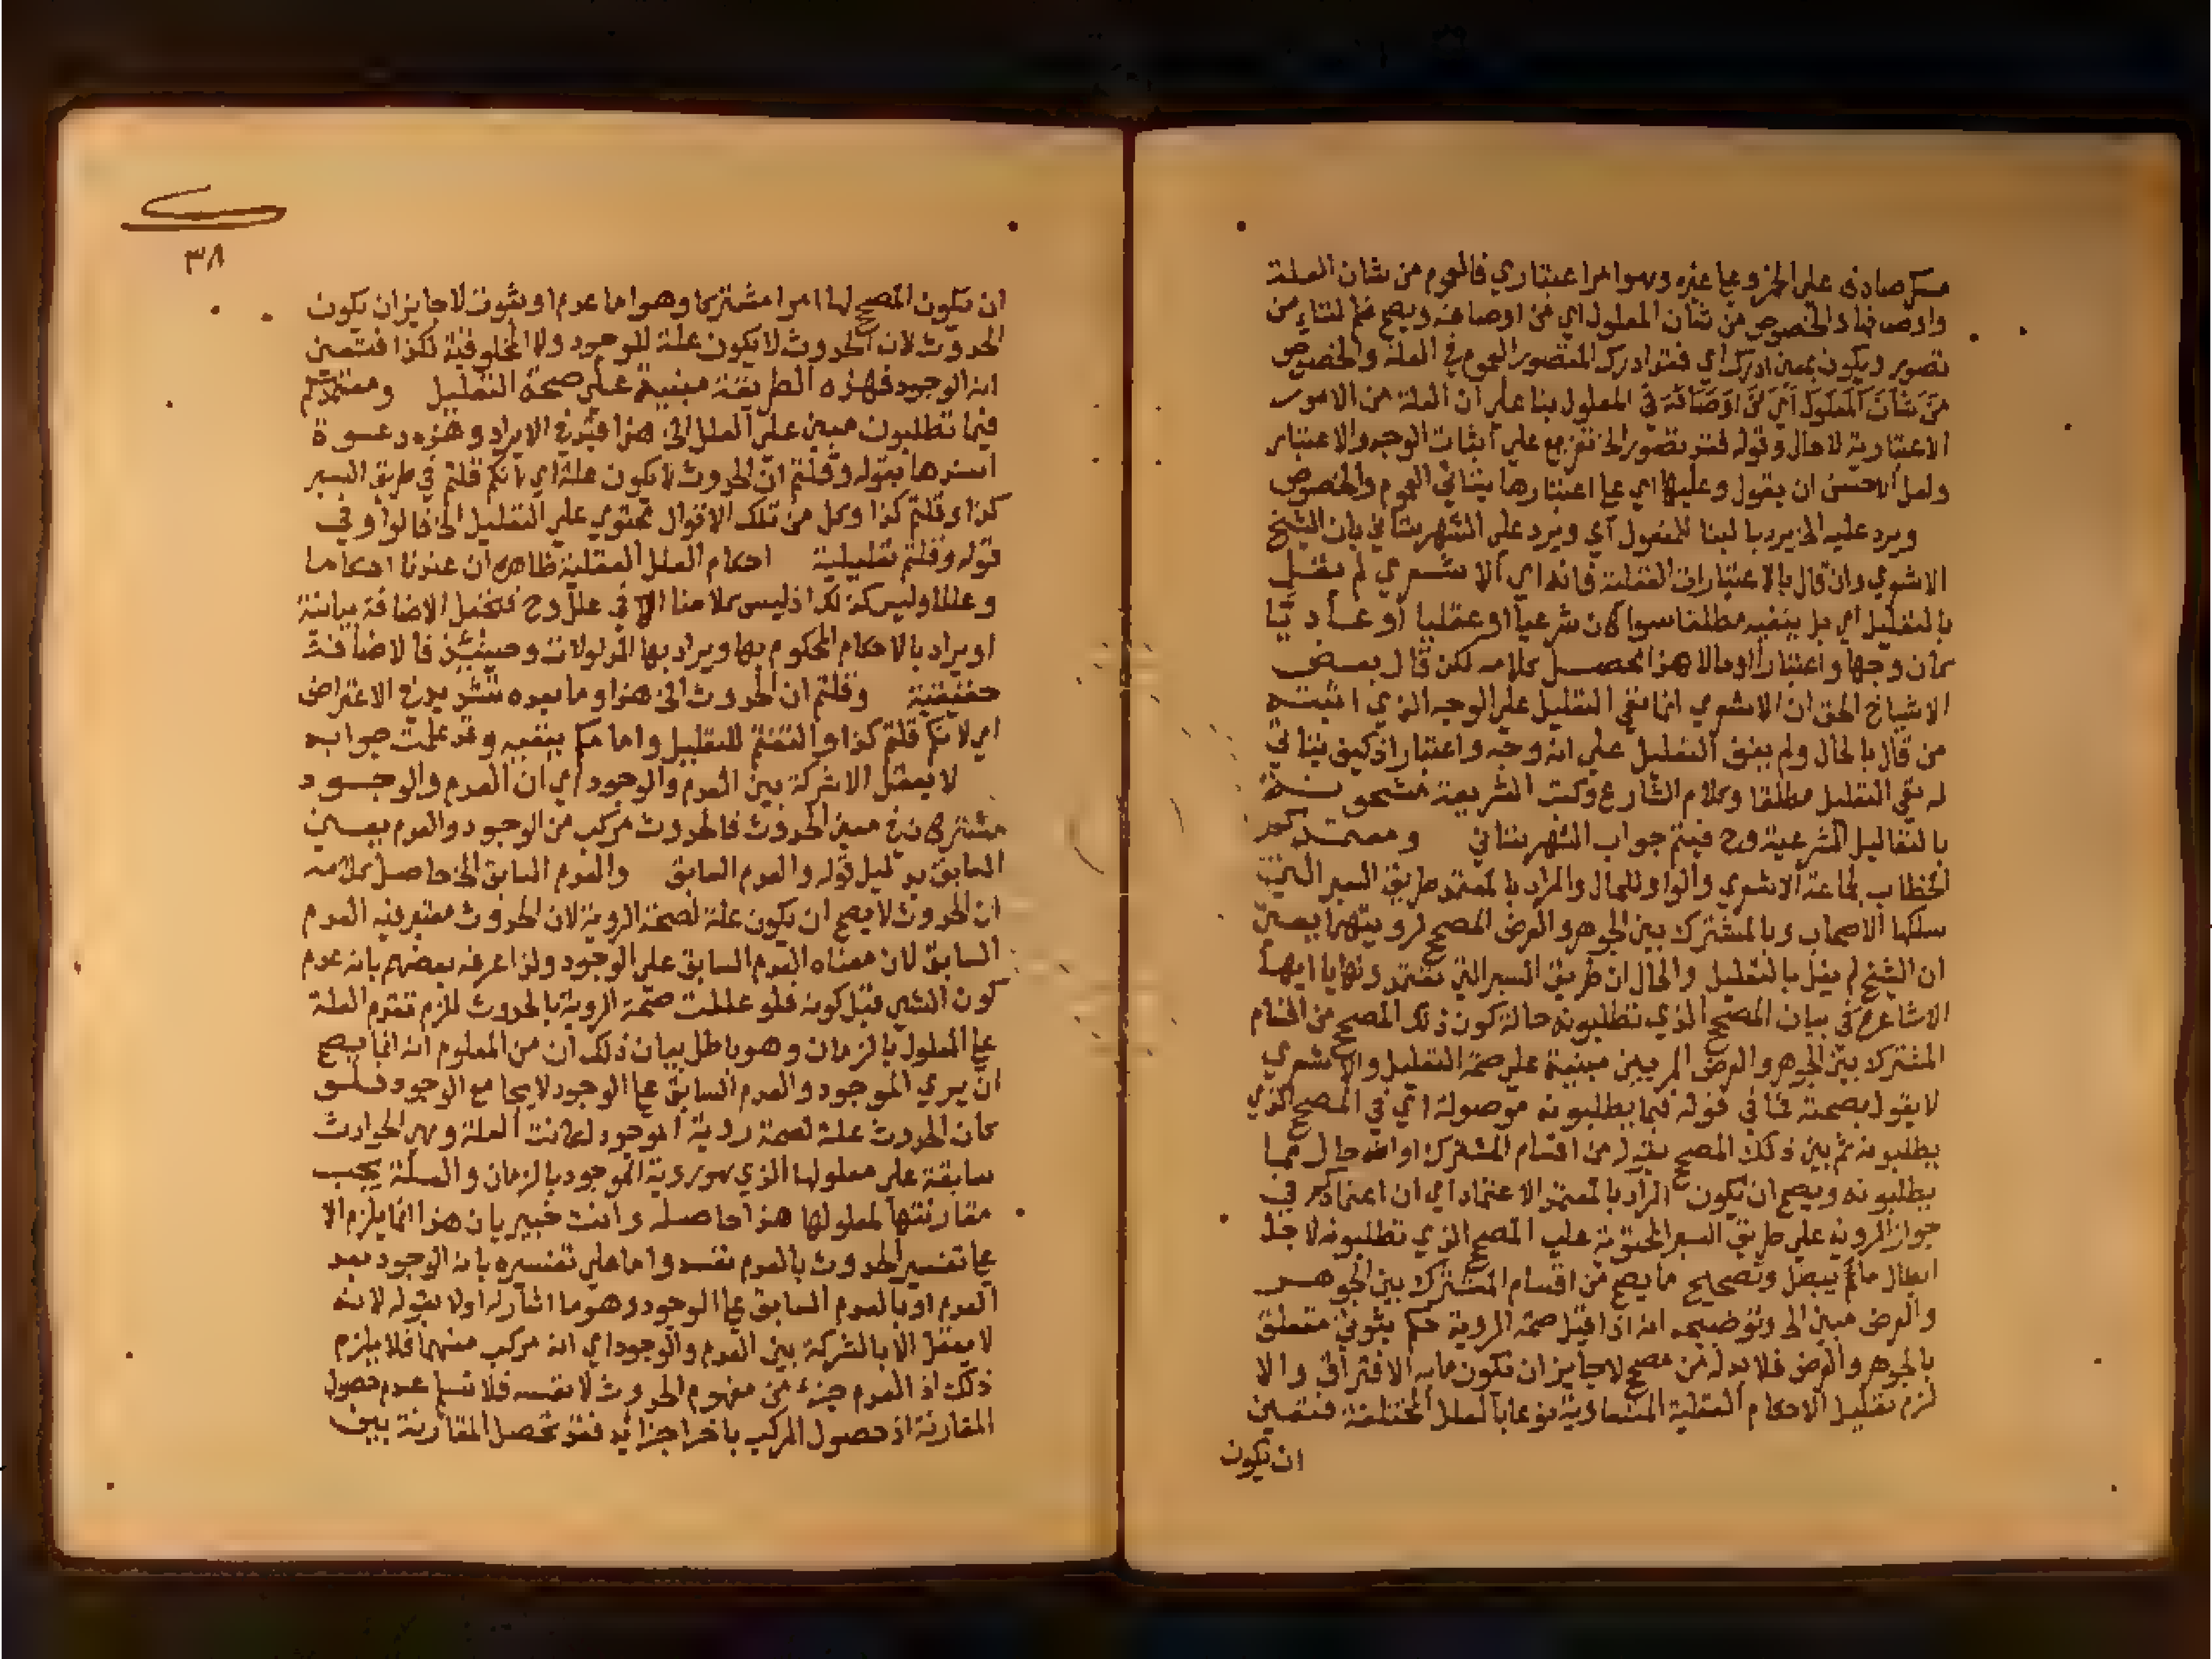 مسكر صادق على الخمر وعلى غيره وهو امر اعتباري فالعموم من شان العلة
واوصافها والخصوص من شان المعلول اي من اوصافه ويصح ضم لمتناء من
تصور ويكون بمعنى ادرك اي فقد ادرك المتصور العموم في العلة والخصوص
من شان المعلول اي من اوصافه في المعلول بناء على ان العلة من الامور
الاعتبارية لا حال وقوله فقد تصور الخ تفريع على اثبات الوجه والاعتبار
ولعل الاحسن ان يقول وعليها اي على اعتبارها يتاتي العموم والخصوص
ويرد عليه الخ يرد بالبنا للمفعول اي ويرد على الشهرستاني بان الشيخ
الاشعري وان قال بالاعتبارات العقلية فانه اي الاشعري لم يقل
بالتعليل اي بل ينفيه مطلقا سوا كان شرعيا او عقليا او عاديا
كان وجها واعتبارا او حالا هذا محصل كلامه لكن قال بعض
الاشياخ الحق ان الاشعري انما نفي التعليل على الوجه الذي اثبته
من قال بالحال ولم ينف التعليل على انه وجه واعتبار اذ كيف يتاتي
له نفي التعليل مطلقا وكلام الشارع وكتب الشريعة مشحونة
بالتعاليل الشرعية وح فيتم جواب الشهرستاني ومعتمدكم
الخطاب لجماعة الاشعري والواو للحال والمراد بالمعتمد طريق السبر التي
سلكها الاصحاب وبالمشترك بين الجوهر والعرض المصحح لرويتهما يعني
ان الشيخ لم يقل بالتعليل والحال ان طريق السبر التي تعتمدونها يا ايها
الاشاعرة في بيان المصحح الذي تطلبونه حالة كون ذلك المصحح من اقسام
المشترك بين الجوهر والعرض المربيين مبنية على صحة التعليل والاشعري
لا يقول بصحته فما في قوله فيما يطلبونه موصولة اي في المصحح الذي
يطلبونه ثم بين ذلك المصحح بقوله من اقسام المشترك او انه حال مما
يطلبونه ويصح ان يكون المراد بالمعتمد الاعتماد اي ان اعتمادكم في
جواز الروية على طريق السبر المحتوية على المصحح الذي تطلبونه لاجل
ابطال ما لم يبطل وتصحيح ما يصح من اقسام المشترك بين الجوهر
والعرض مبني الخ وتوضيحه انه اذا قيل صحة الروية حكم ثبوتي متعلق
بالجوهر والعرض فلا بد له من مصحح لا جايز ان تكون مابه الافتراق والا
لزم تعليل الاحكام العقلية المتساوية نوعا بالعلل المختلفة فتعين
ان يكون
٣٨
ان يكون المصحح لها امرا مشتركا وهو اما عدم او ثبوت لا جايز ان يكون
الحدوث لان الحدوث لا يكون علة للوجود ولا المخلوقية لكذا فتعين
انه الوجود فهذه الطريقة مبنية على صحة التعليل ومعتمدكم
فيما تطلبون مبني على العلل الخ هذا قيد في الايراد وهذه دعوة
اسندها بقوله وقلتم ان الحدوث لا يكون علة اي لانكم قلتم في طريق السبر
كذا وقلتم كذا وكل من تلك الاقوال تحتوي على التعليل الخ فالواو في
قوله وقلتم تعليلية احكام العلل العقلية ظاهره ان عندنا احكاما
وعللا وليس كذلك اذ ليس كلامنا الا في علل وح فتجعل الاضافة بيانية
او يراد بالاحكام المحكوم بها ويراد بها المدلولات وحينئذ فالاضافة
حقيقية وقلتم ان الحدوث الخ هذا وما بعده تشديد في الاعتراض
اي لانكم قلتم كذا والتفتم للتعليل وامامكم ينفيه وقد علمت جوابه
لا يعقل الا شركة بين العدم والوجود اي ان العدم والوجود
مشتركان في معنى الحدوث فالحدوث مركب من الوجود والعدم يعني
السابق بدليل قوله والعدم السابق والعدم السابق الخ حاصل كلامه
ان الحدوث لا يصح ان يكون علة لصحة الروية لان الحدوث معتبر فيه العدم
السابق لان معناه العدم السابق على الوجود ولذا عرفه بعضهم بانه عدم
كون الشي قبل كونه فلو عللت صحة الروية بالحدوث للزم تقدم العلة
على المعلول بالزمان وهو باطل بيان ذلك ان من المعلوم انه انما يصح
ان يري الموجود والعدم السابق على الوجود لا يجامع الوجود فلو
كان الحدوث علة لصحة روية الموجود لكانت العلة وهي الحوادث
سابقة على معلولها الذي هو روية الموجود بالزمان والعلة يجب
مقارنتها لمعلولها هذا حاصله وانت خبير بان هذا انما يلزم الا
على تفسير الحدوث بالعدم نفسه واما على تفسيره بانه الوجود بعد
العدم او بالعدم السابق على الوجود وهو ما اشار له اولا بقوله لانه
لا يعقل الا بالشركة بين العدم والوجود اي انه مركب منهما فلا يلزم
ذلك اذ العدم جزء من مفهوم الحدوث لا نفسه فلا نسلم عدم حصول
المقارنة اذ حصول المركب باخر اجزائه فقد تحصل المقارنة بين